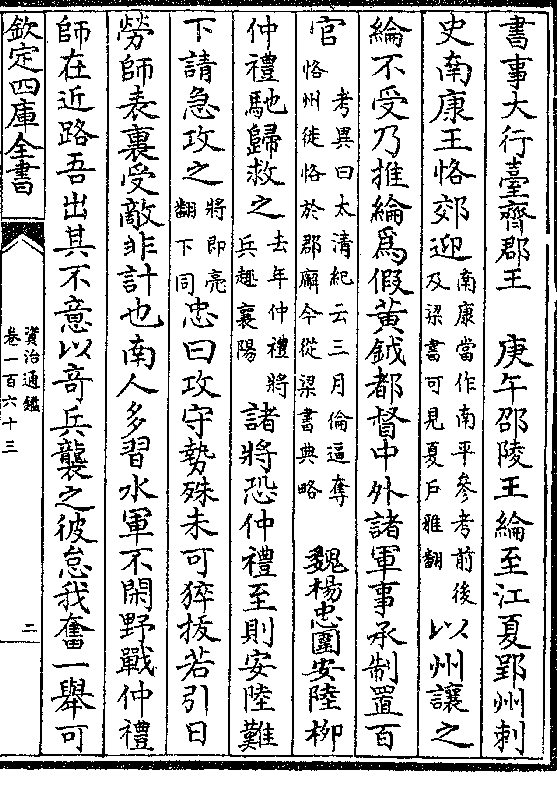 書事大行臺齊郡王　庚午邵陵王綸至江夏郢州刺
史南康王恪郊迎南康當作南平參考前後及梁書可見夏戶雅翻以州讓之
綸不受乃推綸爲假黃鉞都督中外諸軍事承制置百
官考異曰太清紀云三月倫逼奪恪州徙恪於郡廨今從梁書典略　魏楊忠圍安陸柳
仲禮馳歸救之去年仲禮將兵趣襄陽諸將恐仲禮至則安陸難
下請急攻之將即亮翻下同忠曰攻守勢殊未可猝拔若引日
勞師表裏受敵非計也南人多習水軍不閑野戰仲禮
師在近路吾出其不意以竒兵襲之彼怠我奮一舉可
欽定四庫全書
資治通鑑
卷一百六十三
二